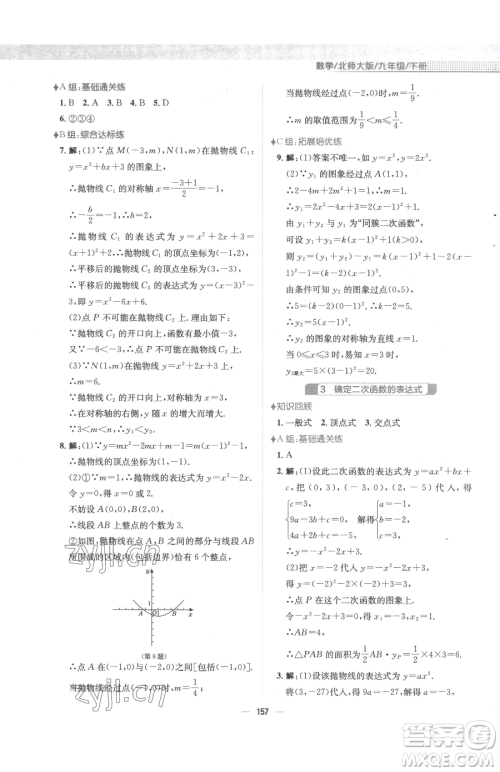 数学/北师大版/九年级/下册
A组:基础通关练
1. B 2. A 3. B 4. A 5. B
6. ②③④
B组:综合达标练
7. 解:(1)∵点 M(-3,m),N(1,m)在抛物线 C₁:
y=x²+bx+3 的图象上,
∴抛物线 C₁ 的对称轴 x=(-3+1)/2=-1,
∴-b/2=-1,
∴b=2,
∴抛物线 C₁ 的表达式为 y=x²+2x+3=
(x+1)²+2,
∴抛物线 C₁ 的顶点坐标为(-1,2),
∴平移后的抛物线 C₂ 的顶点坐标为(3,-3),
∴平移后的抛物线 C₂ 的表达式为 y=(x-3)²-3
=x²-6x+6.
(2)点 P 不可能在抛物线 C₂ 上.理由如下:
∵抛物线 C₂ 的开口向上,函数有最小值-3,
又∵-6<-3,
∴点 P 不可能在抛物线 C₂ 上.
(3)∵抛物线 C₂ 的开口向上,对称轴为 x=3,
∴在对称轴的右侧,y 随 x 的增大而增大.
∵3<m<n,
∴y₁<y₂.
8. 解:(1)∵y=mx²-2mx+m-1=m(x-1)²-1,
∴抛物线的顶点坐标为(1,-1).
(2)①∵m=1,∴抛物线的表达式为 y=x²-2x.
令 y=0,得 x=0 或 x=2.
不妨设 A(0,0),B(2,0),
∴线段 AB 上整点的个数为 3.
②如图,抛物线在点 A,B 之间的部分与线段 AB
所围成的区域(包括边界)恰有 6 个整点,
(第 8 题)
∴点 A 在(-1,0)与(-2,0)之间[包括(-1,0)].
当抛物线经过点(-1,0)时,m=1/4;
当抛物线经过点(-2,0)时,m=1/9.
∴m 的取值范围为 1/9<m≤1/4.
C组:拓展培优练
9. 解:(1)答案不唯一,如 y=x²,y=2x².
(2)∵y₁ 的图象经过点 A(1,1),
∴2-4m+2m²+1=1,
∴m=1,
∴y₁=2x²-4x+3=2(x-1)²+1.
∵y₁+y₂ 与 y₁ 为“同簇二次函数”,
可设 y₁+y₂=k(x-1)²+1(k>0),
则 y₂=k(x-1)²+1-y₁=(k-2)(x-1)².
由条件可知 y₂ 的图象经过点(0,5),
∴5=(k-2)(0-1)²,
∴k-2=5,
∴y₂=5(x-1)²=5x²-10x+5.
∵y₂ 的图象的对称轴为直线 x=1,
当 0≤x≤3 时,
y₂最大=5×(3-1)²=20.
3 确定二次函数的表达式
知识回顾
1. 一般式 2. 顶点式 3. 交点式
A组:基础通关练
1. A
2. 解:(1)设此二次函数的表达式为 y=ax²+bx+
c,把(0,3),(-3,0),(2,-5)代入,得
{c=3, 9a-3b+c=0, 4a+2b+c=-5, 解得{a=-1, b=-2, c=3,
∴y=-x²-2x+3.
(2)把 x=-2 代入,得 y=-(-2)²-2×(-2)+3=3,
∴点 P 在这个二次函数的图象上.
令-x²-2x+3=0,
∴x₁=-3,x₂=1,
∴△PAB 的面积为 1/2·AB·yₚ=1/2×4×3=6.
3. 解:(1)设顶点为原点的抛物线的表达式为 y=ax².
将(3,-27)代入,得 9a=-27,∴a=-3,
157